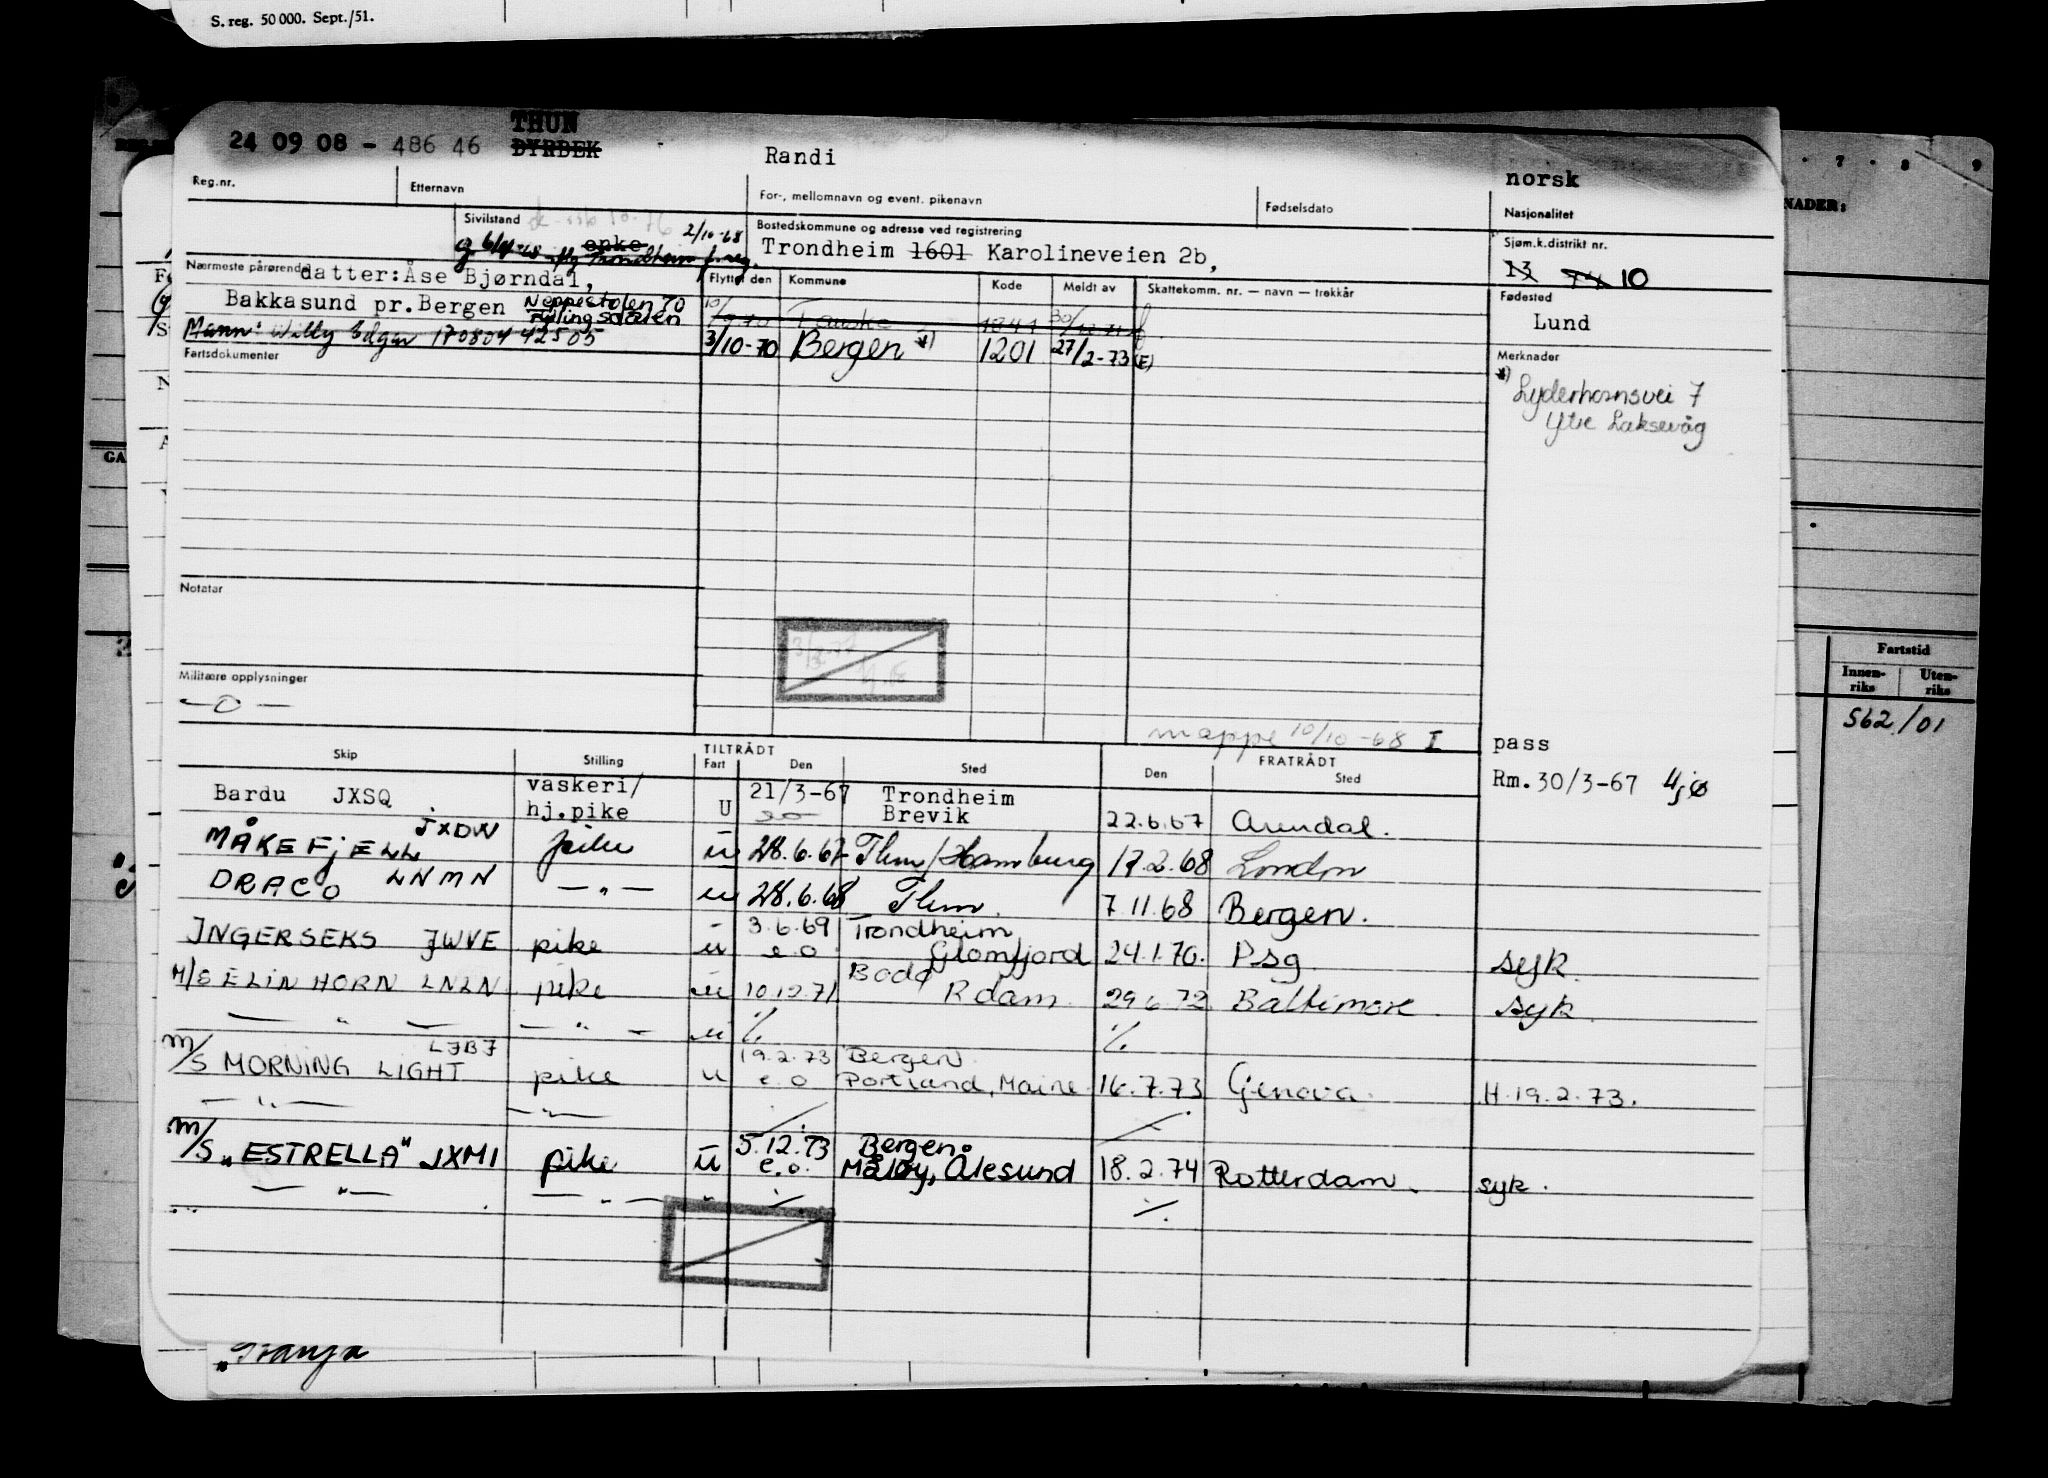 S. reg. 50 000. Sept./51.
24 09 08 - 486 46 THUN
DYRBEK
Randi
norsk
Reg.nr. Etternavn For-, mellomnavn og event. pikenavn Fødselsdato Nasjonalitet
Sivilstand 2/10-68
enke
Bostedskommune og adresse ved registrering
Trondheim 1601 Karolineveien 2b,
Sjøm.k.distrikt nr.
13 10
Nærmeste pårørende
datter: Åse Bjørndal,
Bakkasund pr. Bergen Neppestølen 70
Fyllingsdalen
Mann: Willy Edgar 170804 42505
Flyttet den Kommune Kode Meldt av Skattekomm. nr. — navn — trekkår
Fauske
3/10-70 Bergen *) 1201 27/2-73 (E)
Fødested
Lund
Merknader
*) Lyderhornsvei 7
Ytre Laksevåg
Fartsdokumenter
Notatar
Militære opplysninger
— 0 —
mappe 10/10-68 I
pass
Rm. 30/3-67
Skip Stilling TILTRÅDT Fart Den Sted FRATRÅDT Den Sted
Bardu JXSQ vaskeri/ hj.pike U 21/3-67 Trondheim Brevik 22.6.67 Arendal.
MÅKEFJELL JXDW pike u 28.6.67 Thm/Hamburg 17.2.68 London
DRACO LNMN — " — u 28.6.68 Thm. 7.11.68 Bergen.
INGERSEKS JWVE pike u 3.6.69 e.o Trondheim Glomfjord 24.1.70. Psg. syk.
M/S ELIN HORN LNLN pike u 10.12.71 Bodø Rdam. 29.6.72 Baltimore. syk.
— " — — " — u ./. ./.
M/S MORNING LIGHT LJBJ pike u 19.2.73 e.o Bergen Portland, Maine 16.7.73 Genova. H. 19.2.73.
— " — — " — ./. ./.
M/S „ESTRELLA" JXMI pike u 5.12.73 e.o. Bergen. Måløy, Ålesund 18.2.74 Rotterdam. syk.
— " — — " — " ./. ./.
7 8 9
NADER:
GA
Fartstid
Innen-riks Uten-riks
562/01
„Tranja